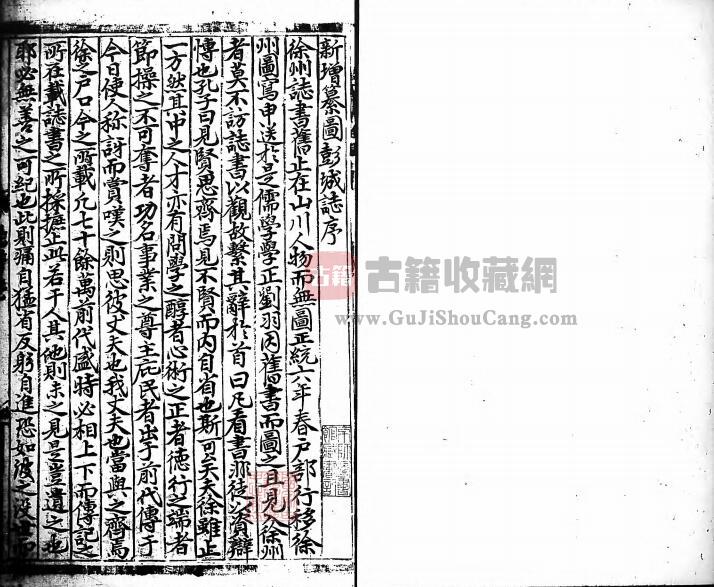 新增纂圖彭城誌序
徐州誌書舊止在山川人物而無圖正統六年春戶部行移徐
州圖寫申送於是儒學學正劉羽因舊書而圖之且見徐州
者莫不訪誌書以觀故繫其辭於首曰凡看書非徒以資辯
博也孔子曰見賢思齊焉見不賢而內自省也斯可矣夫徐雖止
一方然其中之人才亦有問學之醇者心術之正者德行之端者
節操之不可奪者功名事業之尊主庇民者出于前代傳于
今日使人稱訝而賞嘆之則思彼丈夫也我丈夫也當與之齊焉
徐之戶口今之所載凡七十餘萬前代盛時必相上下而傳記之
所在載誌書之所採摭止此若干人其他則未之見是豈遺之也
耶必無善之可紀也此則痛自猛省反躬自進恐如彼之沒世而
古籍
古籍收藏網
www.GuJiShouCang.com